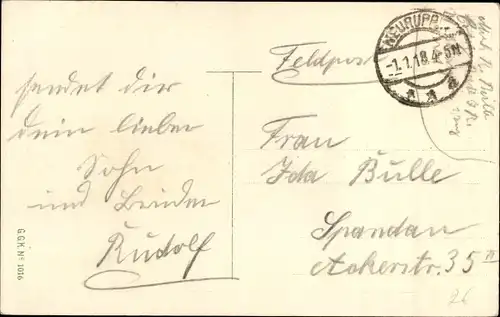 sendet dir
dein lieber
Sohn
und Bruder
Rudolf
Feldpost
NEURUPP
-1.1.18.4-5N
a a a
Frau
Ida Bulle
Spandau
Ackerstr. 35 III
26
G.G.K. No 1016